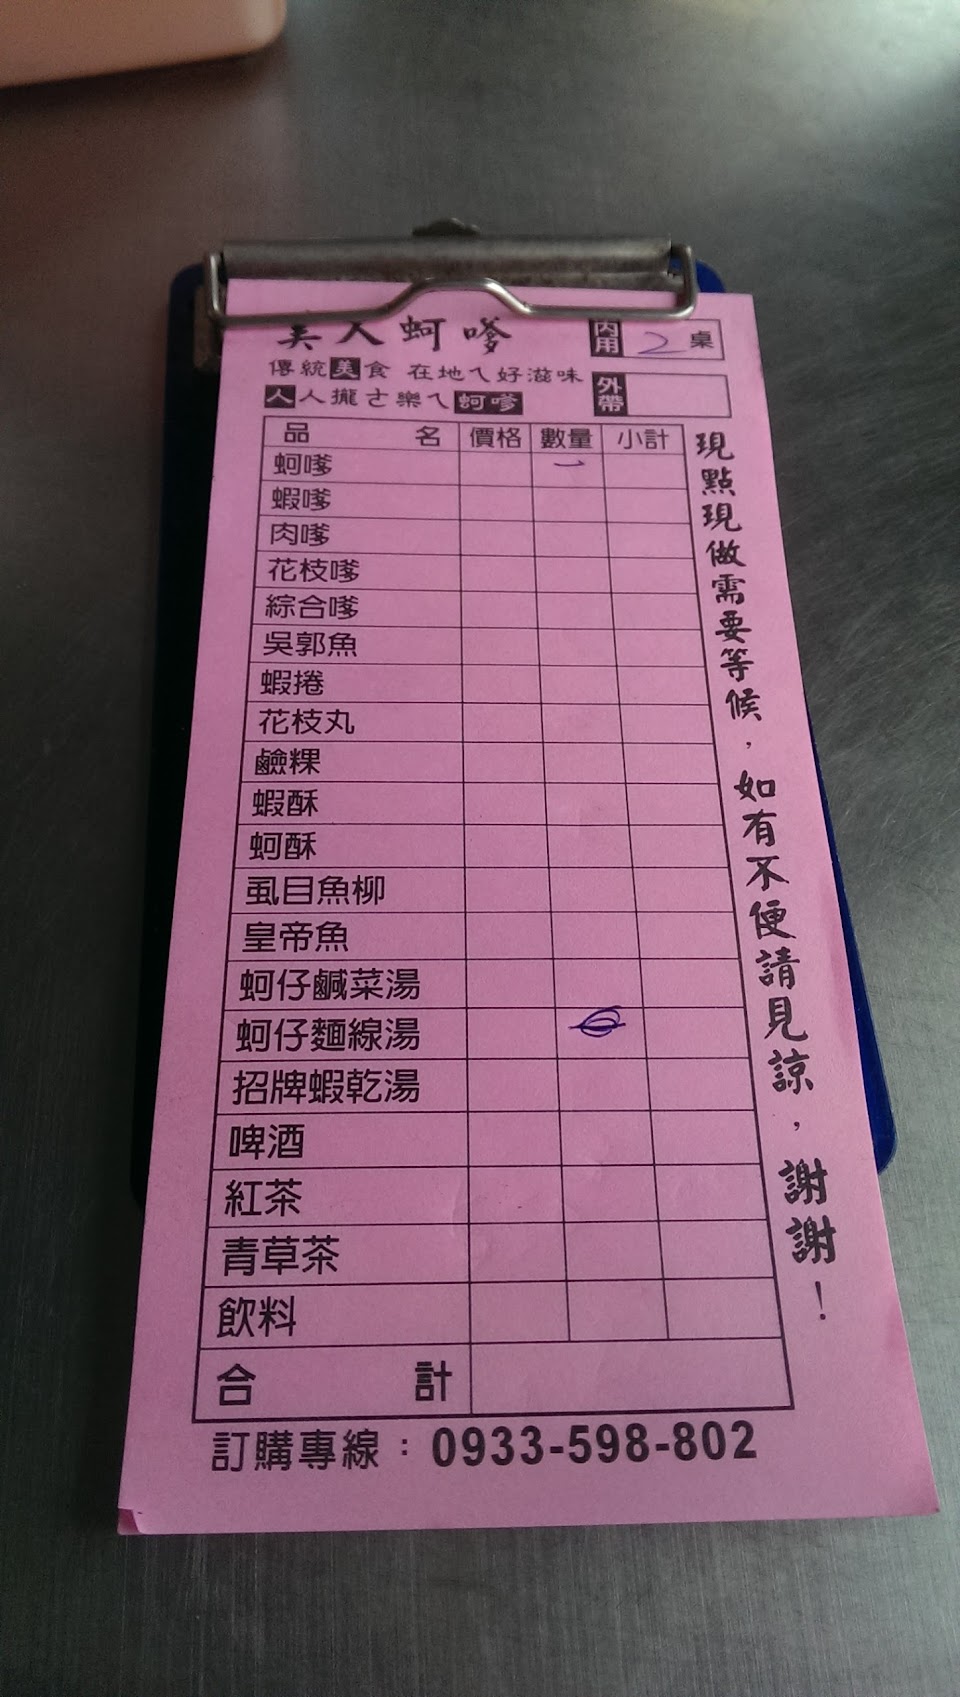 美人蚵嗲
內用 2 桌
傳統美食 在地ㄟ好滋味
外帶
人人攏ㄜ樂ㄟ蚵嗲
品名 價格 數量 小計
蚵嗲 一
蝦嗲
肉嗲
花枝嗲
綜合嗲
吳郭魚
蝦捲
花枝丸
鹼粿
蝦酥
蚵酥
虱目魚柳
皇帝魚
蚵仔鹹菜湯
蚵仔麵線湯
招牌蝦乾湯
啤酒
紅茶
青草茶
飲料
合計
訂購專線：0933-598-802
現點現做需要等候，如有不便請見諒，謝謝！